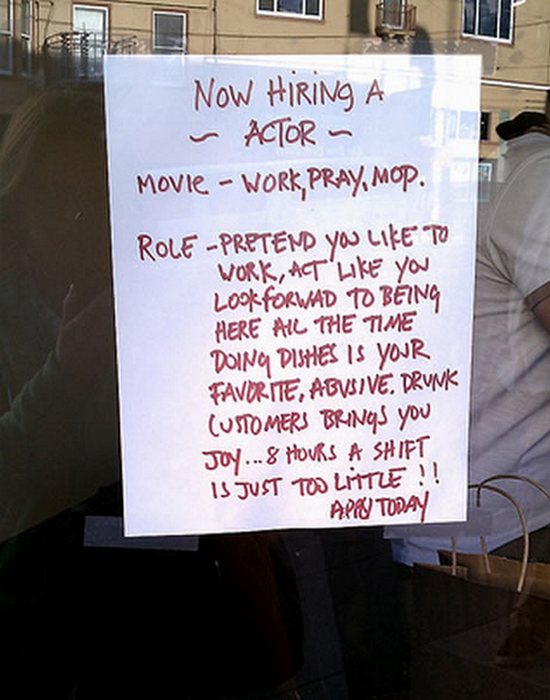 NOW HIRING A
~ ACTOR ~
MOVIE - WORK, PRAY, MOP.
ROLE - PRETEND YOU LIKE TO
WORK, ACT LIKE YOU
LOOK FORWAD TO BEING
HERE ALL THE TIME
DOING DISHES IS YOUR
FAVORITE, ABUSIVE. DRUNK
CUSTOMERS BRINGS YOU
JOY... 8 HOURS A SHIFT
IS JUST TOO LITTLE !!
APPLY TODAY